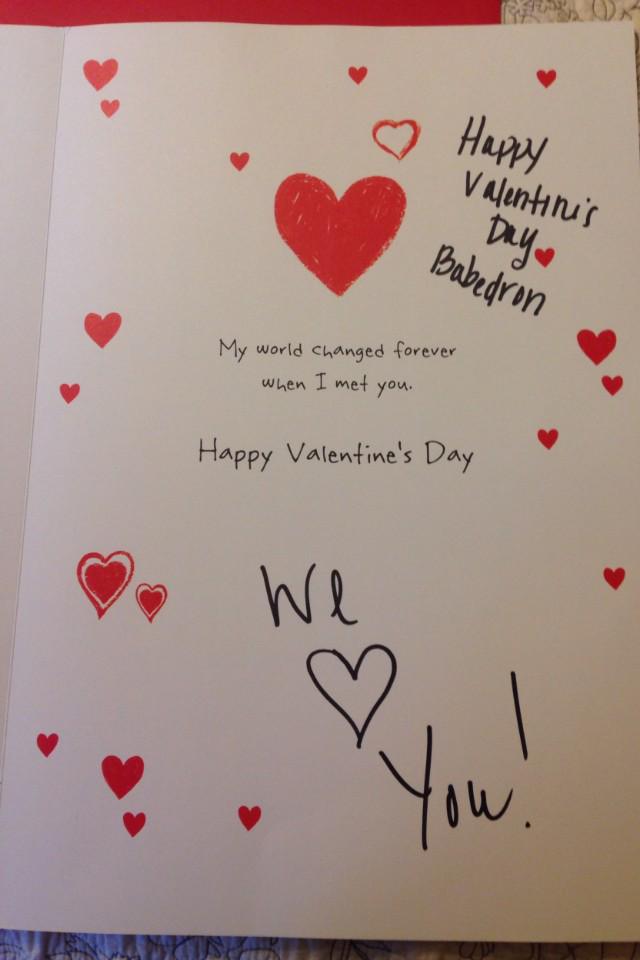 Happy
Valentine's
Day
Babedron
My world changed forever
when I met you.
Happy Valentine's Day
We
♡
You!